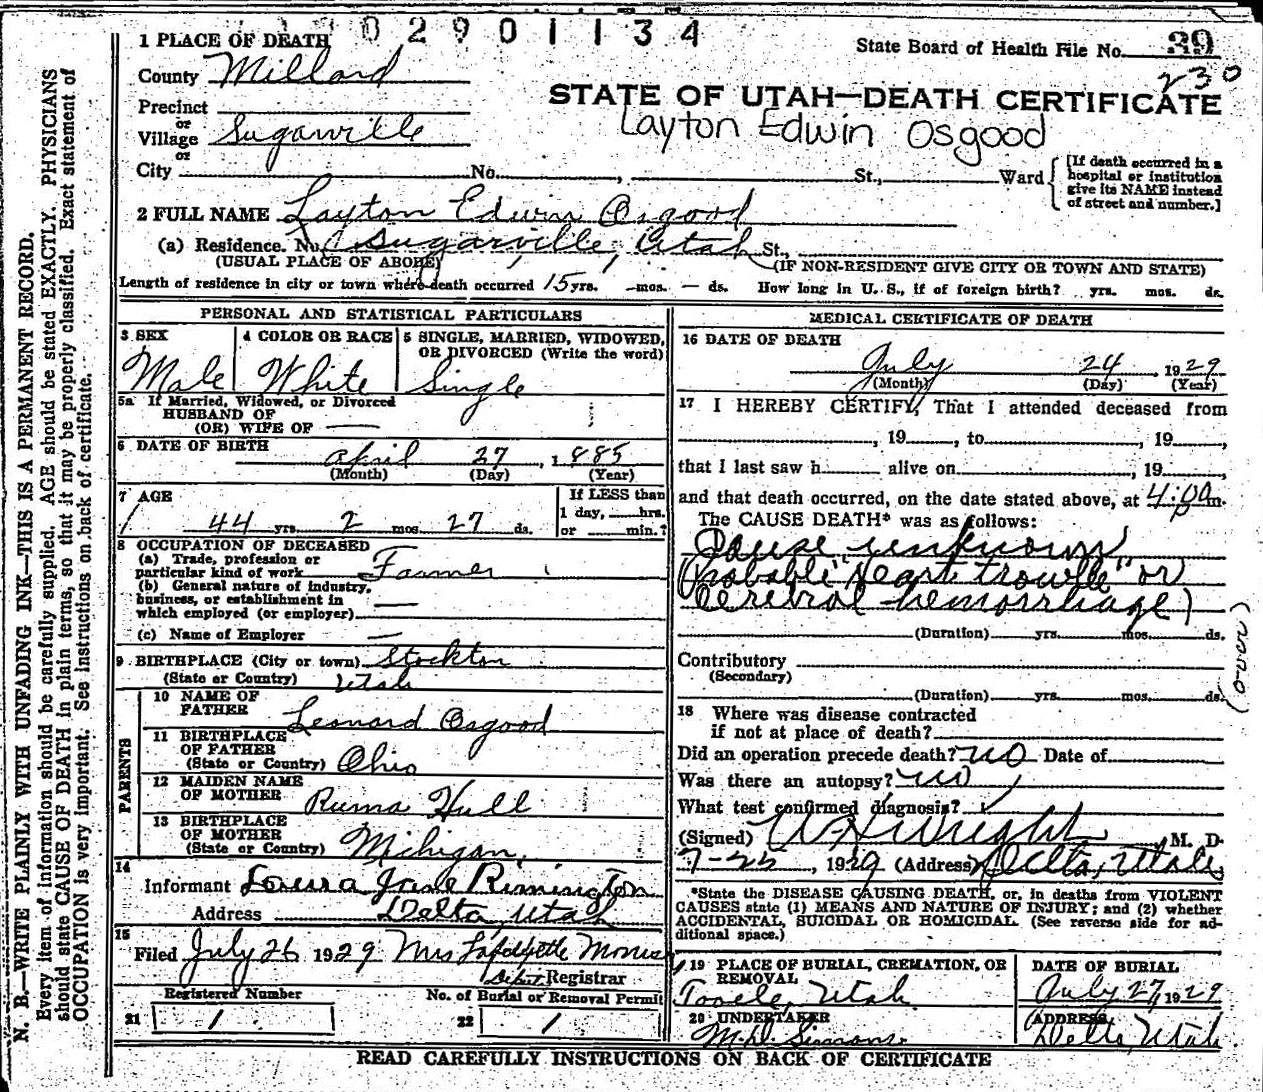 0 2 9 0 1 1 3 4
State Board of Health File No. 39
230
STATE OF UTAH—DEATH CERTIFICATE
Layton Edwin Osgood
1 PLACE OF DEATH
County Millard
Precinct
or
Village Sugarville
or
City No. , St., Ward
[If death occurred in a
hospital or institution
give its NAME instead
of street and number.]
2 FULL NAME Layton Edwin Osgood
(a) Residence. No. Sugarville, Utah St.,
(USUAL PLACE OF ABODE) (IF NON-RESIDENT GIVE CITY OR TOWN AND STATE)
Length of residence in city or town where death occurred 15 yrs. — mos. — ds. How long in U. S., if of foreign birth? yrs. mos. ds.
PERSONAL AND STATISTICAL PARTICULARS
3 SEX
Male
4 COLOR OR RACE
White
5 SINGLE, MARRIED, WIDOWED,
OR DIVORCED (Write the word)
Single
5a If Married, Widowed, or Divorced
HUSBAND OF
(OR) WIFE OF —
6 DATE OF BIRTH
April 27, 1885
(Month) (Day) (Year)
7 AGE
44 yrs. 2 mos. 27 ds.
If LESS than
1 day, hrs.
or min.?
8 OCCUPATION OF DECEASED
(a) Trade, profession or
particular kind of work Farmer
(b) General nature of industry,
business, or establishment in
which employed (or employer) —
(c) Name of Employer —
9 BIRTHPLACE (City or town) Stockton
(State or Country) Utah
PARENTS
10 NAME OF
FATHER Leonard Osgood
11 BIRTHPLACE
OF FATHER
(State or Country) Ohio
12 MAIDEN NAME
OF MOTHER Ruma Hull
13 BIRTHPLACE
OF MOTHER
(State or Country) Mihigan,
14
Informant Laura Jane Rimington
Address Delta, Utah
15
Filed July 26 1929 Mrs Lafayette Morris
Deput Registrar
Registered Number
21 1
No. of Burial or Removal Permit
22 1
MEDICAL CERTIFICATE OF DEATH
16 DATE OF DEATH
July 24 1929
(Month) (Day) (Year)
17 I HEREBY CERTIFY, That I attended deceased from
, 19 , to , 19 ,
that I last saw h alive on , 19
and that death occurred, on the date stated above, at 4:00 m.
The CAUSE DEATH* was as follows:
Cause unknown
(Probable "Heart trouble" or
Cerebral hemorrhage)
(Duration) yrs. mos. ds.
Contributory
(Secondary)
(Duration) yrs. mos. ds.
18 Where was disease contracted
if not at place of death?
Did an operation precede death? no Date of
Was there an autopsy? no
What test confirmed diagnosis?
(Signed) W H Wright, M. D.
7-25, 1929 (Address) Delta, Utah
*State the DISEASE CAUSING DEATH, or, in deaths from VIOLENT
CAUSES state (1) MEANS AND NATURE OF INJURY; and (2) whether
ACCIDENTAL, SUICIDAL OR HOMICIDAL. (See reverse side for ad-
ditional space.)
19 PLACE OF BURIAL, CREMATION, OR
REMOVAL
Tooele, Utah
DATE OF BURIAL
July 27, 1929
20 UNDERTAKER
M. D. Simmons
(ADDRESS)
Delta, Utah
READ CAREFULLY INSTRUCTIONS ON BACK OF CERTIFICATE
N. B.—WRITE PLAINLY WITH UNFADING INK—THIS IS A PERMANENT RECORD.
Every item of information should be carefully supplied. AGE should be stated EXACTLY. PHYSICIANS
should state CAUSE OF DEATH in plain terms, so that it may be properly classified. Exact statement of
OCCUPATION is very important. See instructions on back of certificate.